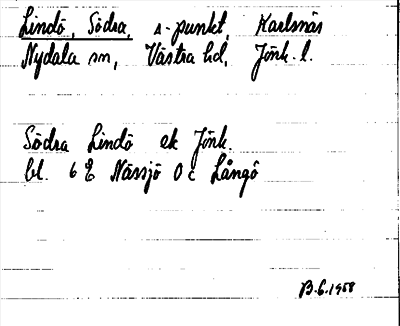 Lindö, Södra, s-punkt, Karlsnäs
Nydala sn, Västra hd, Jönk. l.
Södra Lindö ek Jönk.
bl. 6 E Nässjö 0 c Långö
B.G.1958